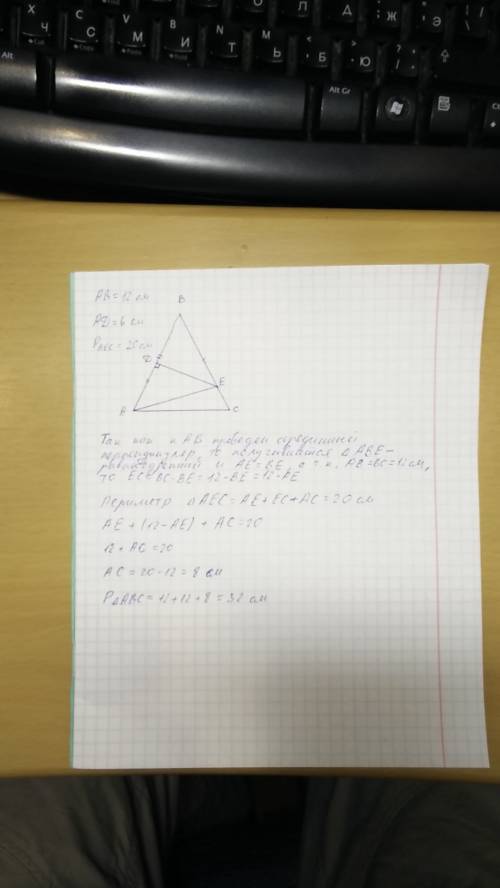 AB = 12 см
AD = 6 см
PAEC = 20 см
B
D
E
A
C
Так как к AB проведен серединный
перпендикуляр, то получившийся △ABE -
равнобедренный и AE = BE, а т.к. AB = BC = 12 см,
то EC = BC - BE = 12 - BE = 12 - AE
Периметр △AEC = AE + EC + AC = 20 см
AE + (12 - AE) + AC = 20
12 + AC = 20
AC = 20 - 12 = 8 см
P△ABC = 12 + 12 + 8 = 32 см
Alt
Alt Gr
Ctrl
Х
Ч
С
М
В
И
N
Т
М
Ь
Б
Ю
О
Л
Д
Ж
Э